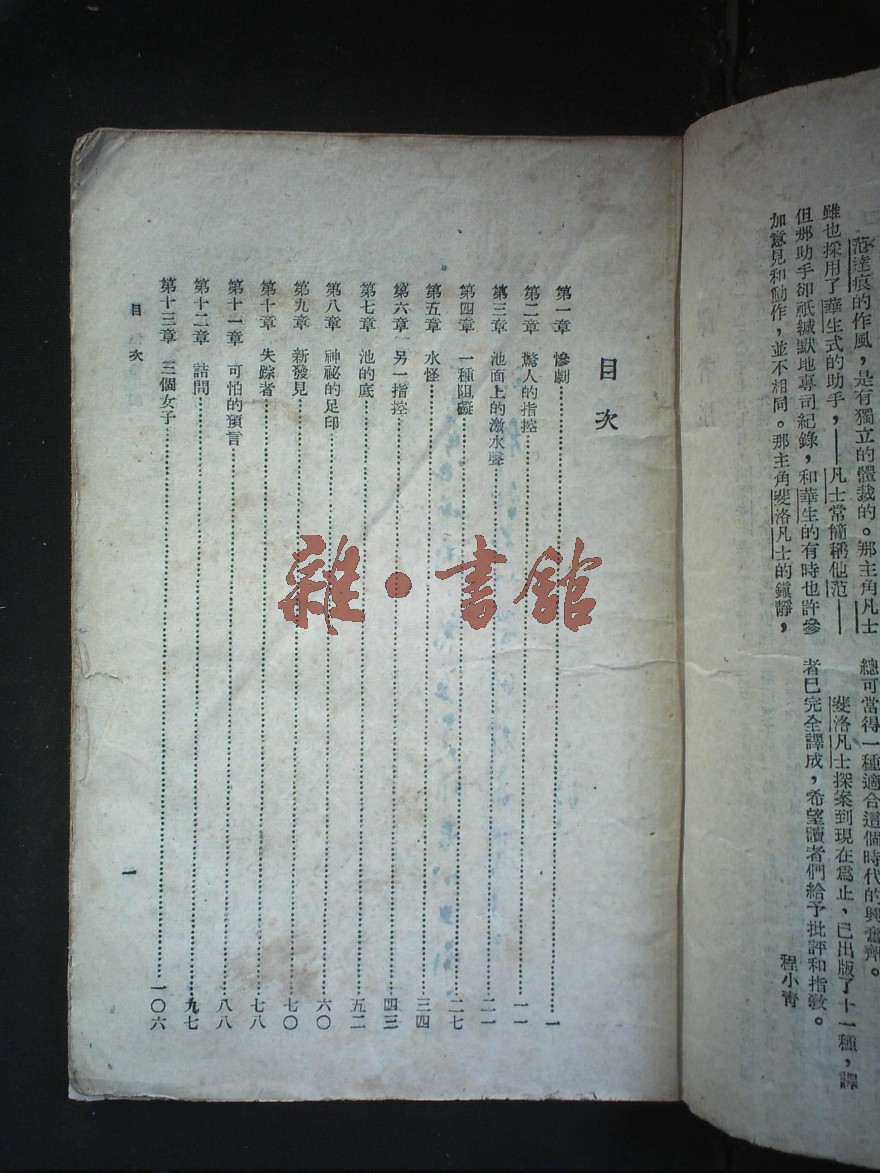 范達痕的作風，是有獨立的體裁的。那主角凡士
雖也採用了華生式的助手，——凡士常簡稱他范——
但那助手卻祇緘默地專司紀錄，和華生的有時也許參
加意見和動作，並不相同。那主角斐洛凡士的鎮靜，
總可當得一種適合這個時代的興奮劑。
斐洛凡士探案到現在為止，已出版了十一種，譯
者已完全譯成，希望讀者們給予批評和指敎。
程小青
目次
第一章 慘劇 一
第二章 驚人的指控 一一
第三章 池面上的激水聲 二一
第四章 一種阻礙 二七
第五章 水怪 三四
第六章 另一指控 四三
第七章 池的底 五二
第八章 神祕的足印 六〇
第九章 新發見 七〇
第十章 失踪者 七八
第十一章 可怕的預言 八八
第十二章 詰問 九七
第十三章 三個女子 一〇六
目次
一
雜·書館